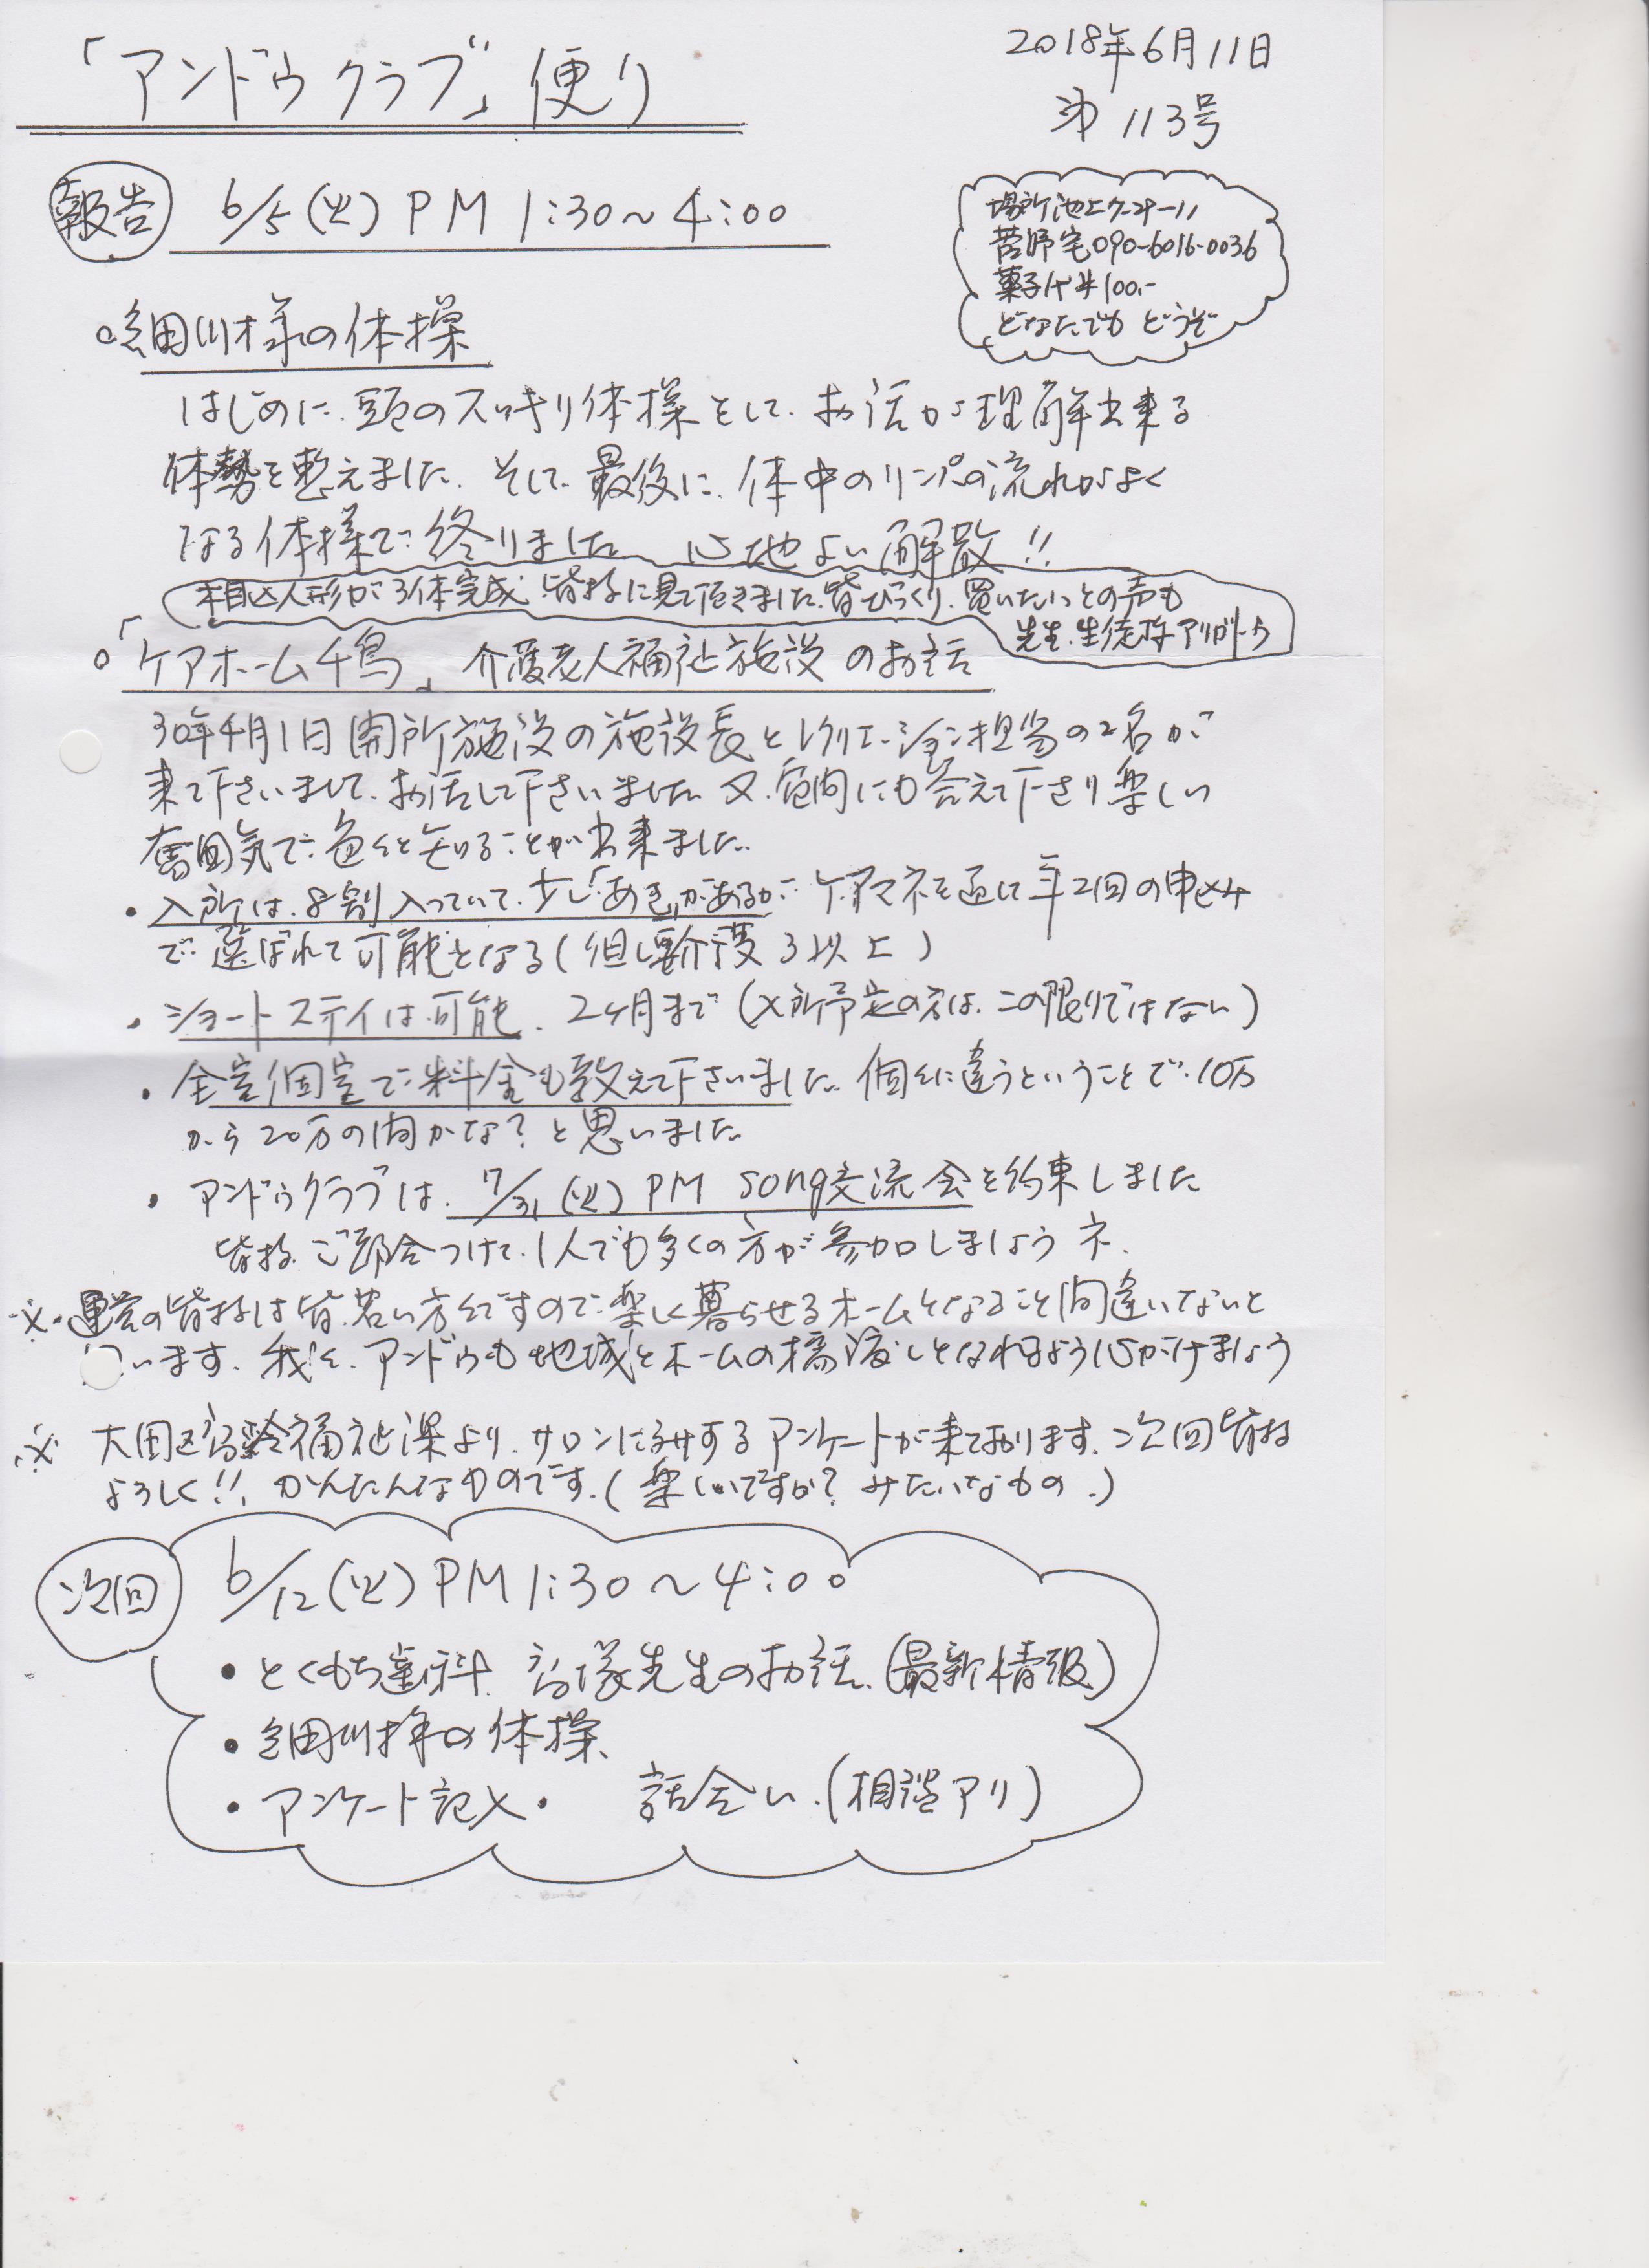 「アンドウクラブ」便り
2018年6月11日
第113号
報告 6/5(火)PM 1:30〜4:00
場所池上
菅野宅090-6016-0036
菓子代¥100.-
どなたでも どうぞ
○細川様の体操
はじめに、頭のスッキリ体操をして、お話が理解出来る
体勢を整えました。そして最後に、体中のリンパの流れがよく
なる体操で終りました 心地よい解散!!
木目込人形が3体完成 皆様に見て頂きました。皆びっくり、買いたいっとの声も
先生、生徒様アリガトウ
○「ケアホーム千鳥」介護老人福祉施設のお話
30年4月1日開所施設の施設長とレクリエーション担当の2名が
来て下さいまして、お話して下さいました。又、質問にも答えて下さり楽しい
雰囲気で色々と知ることが出来ました。
・入所は、8割入っていて、少し「あき」があるが、ケアマネを通じ年2回の申込み
で選ばれて可能となる(但し要介護3以上)
・ショートステイは可能、2ヶ月まで(入所予定の方は、この限りではない)
・全室個室で料金も教えて下さいました。個々に違うということで、10万
から20万の間かな?と思いました
・アンドウクラブは、7/31(火)PM song交流会を約束しました
皆様、ご都合つけて、1人でも多くの方が参加しましょうネ、
※・運営の皆様は皆、若い方々ですので楽しく暮らせるホームとなること間違いないと
います、我々、アンドウも地域とホームの橋渡しとなれるよう心がけましょう
※ 大田区高齢福祉課より、サロンに対するアンケートが来ております、次回皆様
よろしく!!、かんたんなものです、(楽しいですか?みたいなもの、)
次回 6/12(火)PM 1:30〜4:00
・とくもち歯科 先生のお話、(最新情報)
・細川様の体操、
・アンケート記入・ 話合い、(相談アリ)